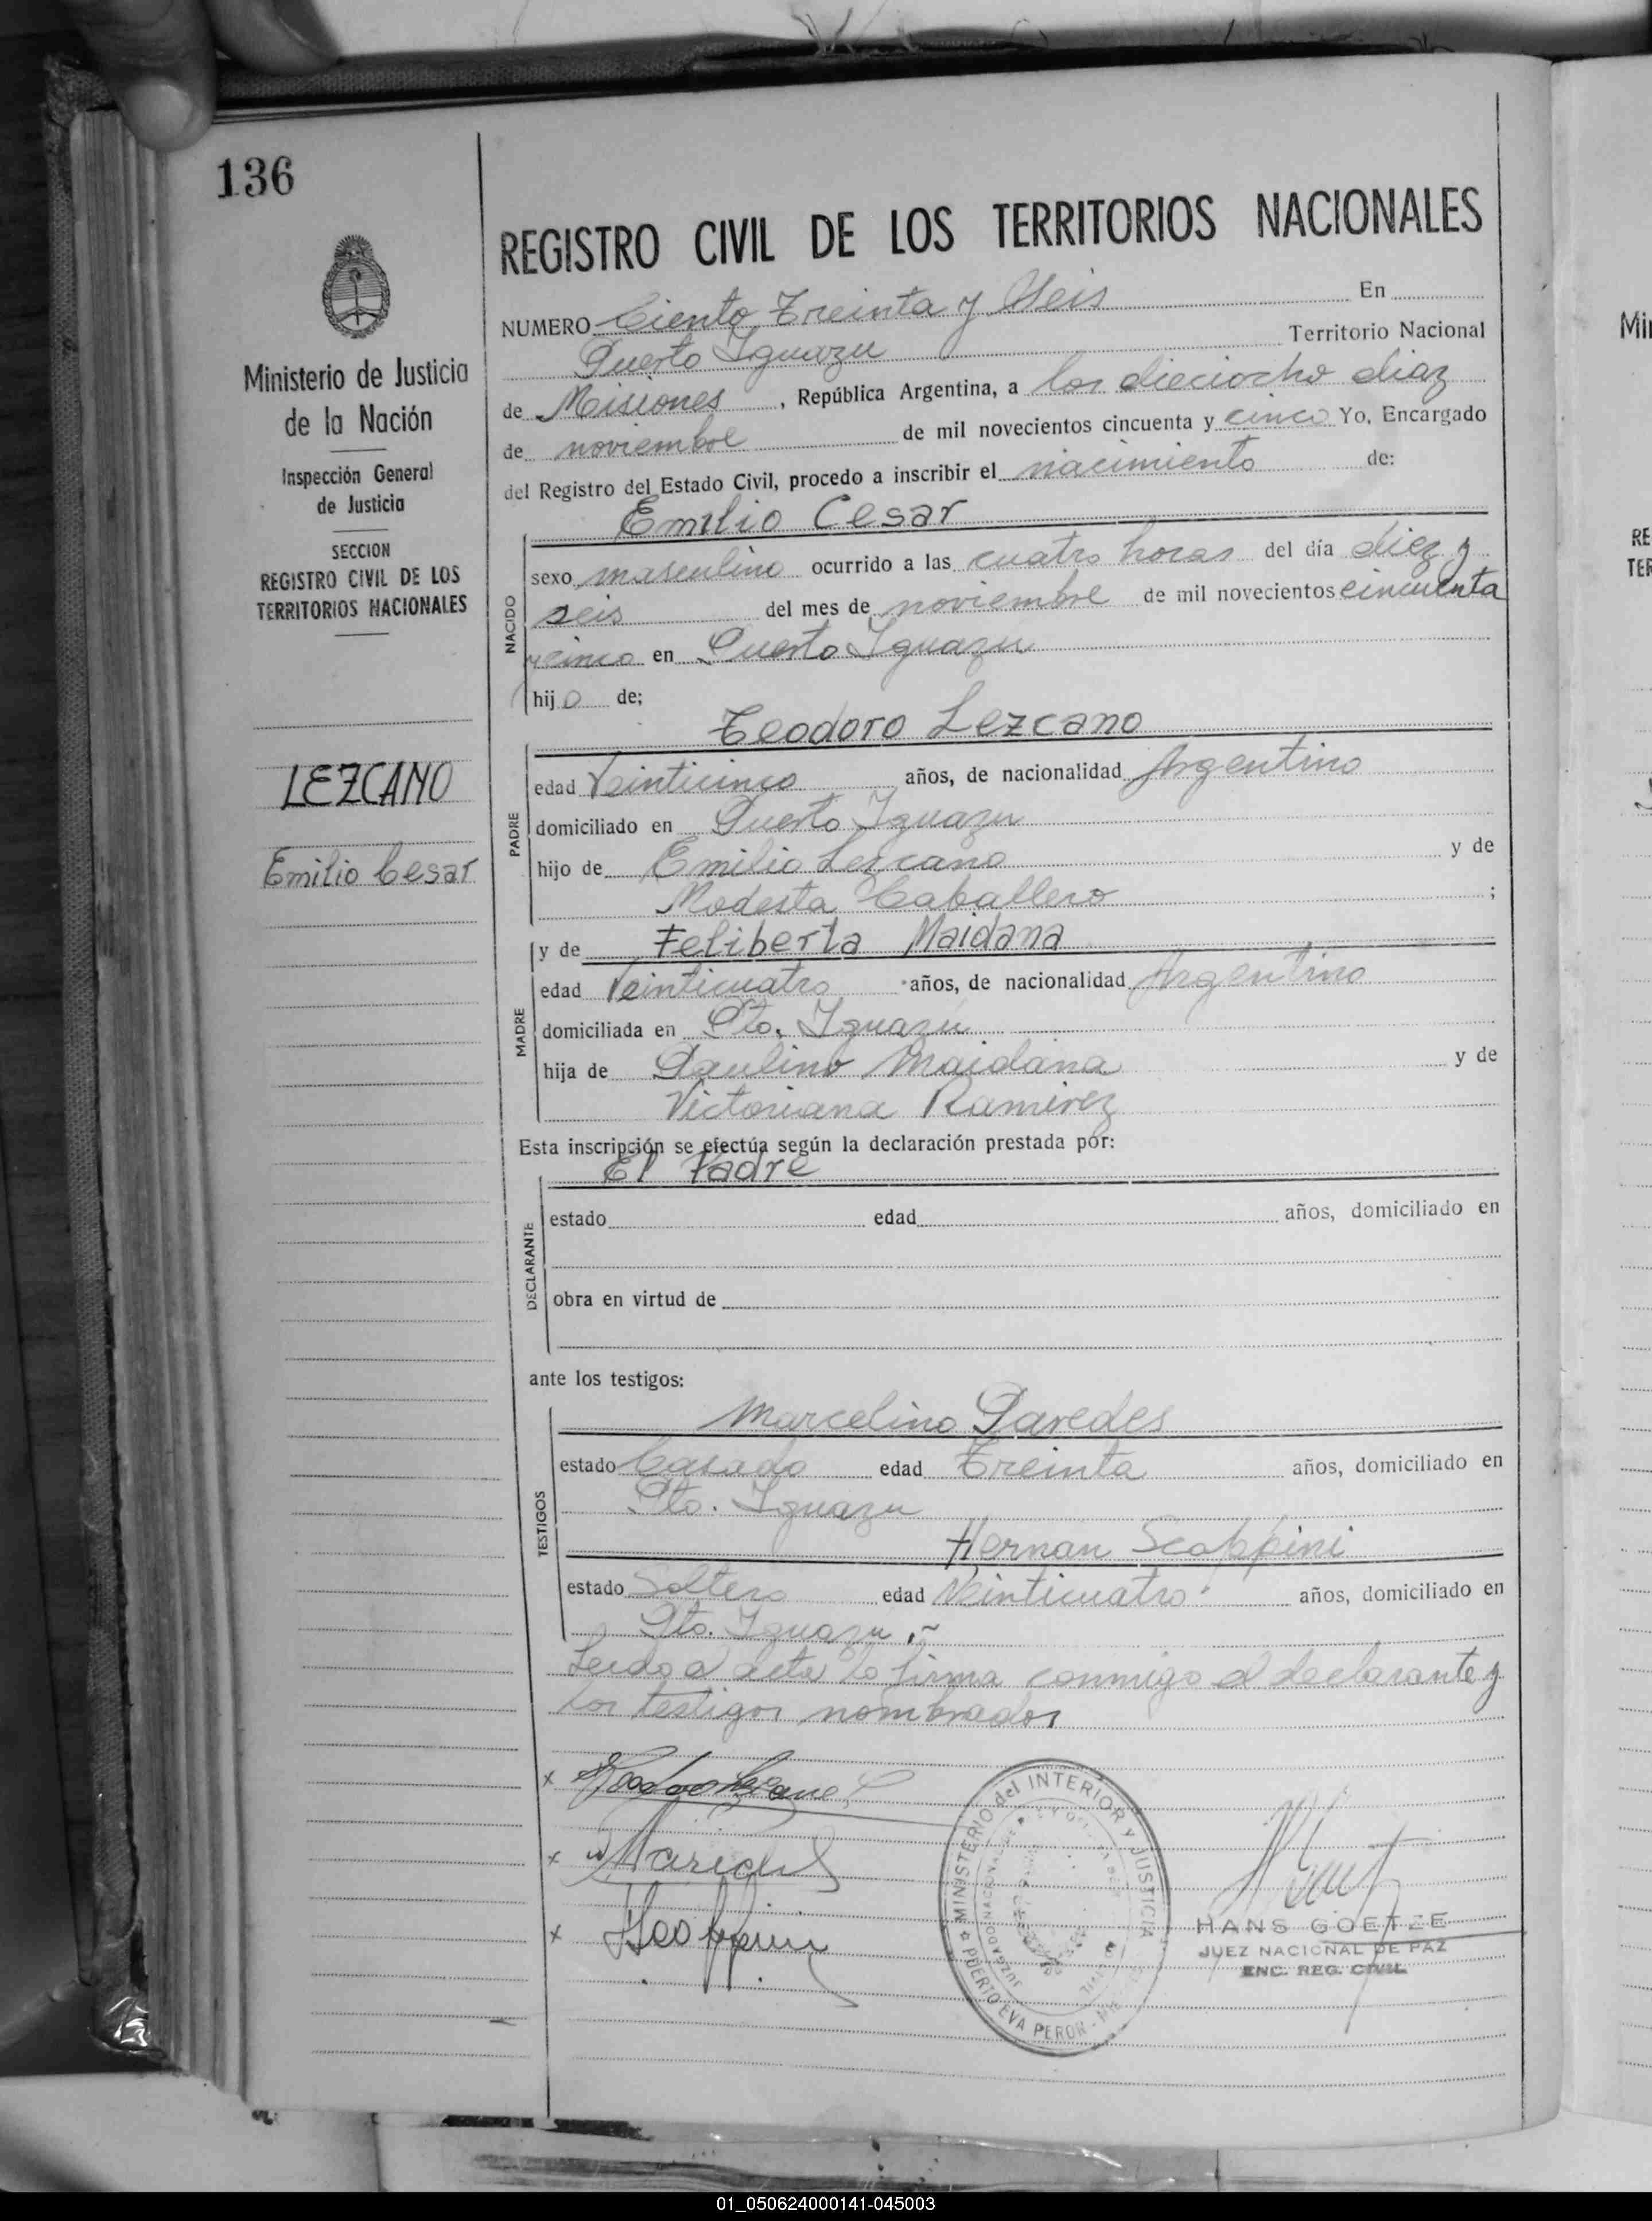 136
Ministerio de Justicia
de la Nación
Inspección General
de Justicia
SECCION
REGISTRO CIVIL DE LOS
TERRITORIOS NACIONALES
LEZCANO
Emilio Cesar
REGISTRO CIVIL DE LOS TERRITORIOS NACIONALES
NUMERO Ciento Treinta y Seis En
Puerto Iguazu Territorio Nacional
de Misiones, República Argentina, a los dieciocho diaz
de noviembre de mil novecientos cincuenta y cinco Yo, Encargado
del Registro del Estado Civil, procedo a inscribir el nacimiento de:
Emilio Cesar
NACIDO
sexo masculino ocurrido a las cuatro horas del día diez y
seis del mes de noviembre de mil novecientos cincuenta
y cinco en Puerto Iguazu
hijo de;
Teodoro Lezcano
PADRE
edad Veinticinco años, de nacionalidad Argentino
domiciliado en Puerto Iguazu
hijo de Emilio Lezcano y de
Modesta Caballero ;
y de Feliberta Maidana
MADRE
edad Veinticuatro años, de nacionalidad Argentino
domiciliada en Pto. Iguazu
hija de Paulino Maidana y de
Victoriana Ramirez
Esta inscripción se efectúa según la declaración prestada por:
El Padre
DECLARANTE
estado edad años, domiciliado en
obra en virtud de
ante los testigos:
Marcelino Paredes
TESTIGOS
estado Casado edad Treinta años, domiciliado en
Pto. Iguazu
Hernan Scappini
estado Soltero edad Veinticuatro años, domiciliado en
Pto. Iguazu .-
Leido el acta lo firma conmigo el declarante y
los testigos nombrados
MINISTERIO del INTERIOR y JUSTICIA
PUERTO EVA PERON
HANS GOETZE
JUEZ NACIONAL DE PAZ
ENC. REG. CIVIL
Mi
RE
TER
01_050624000141-045003